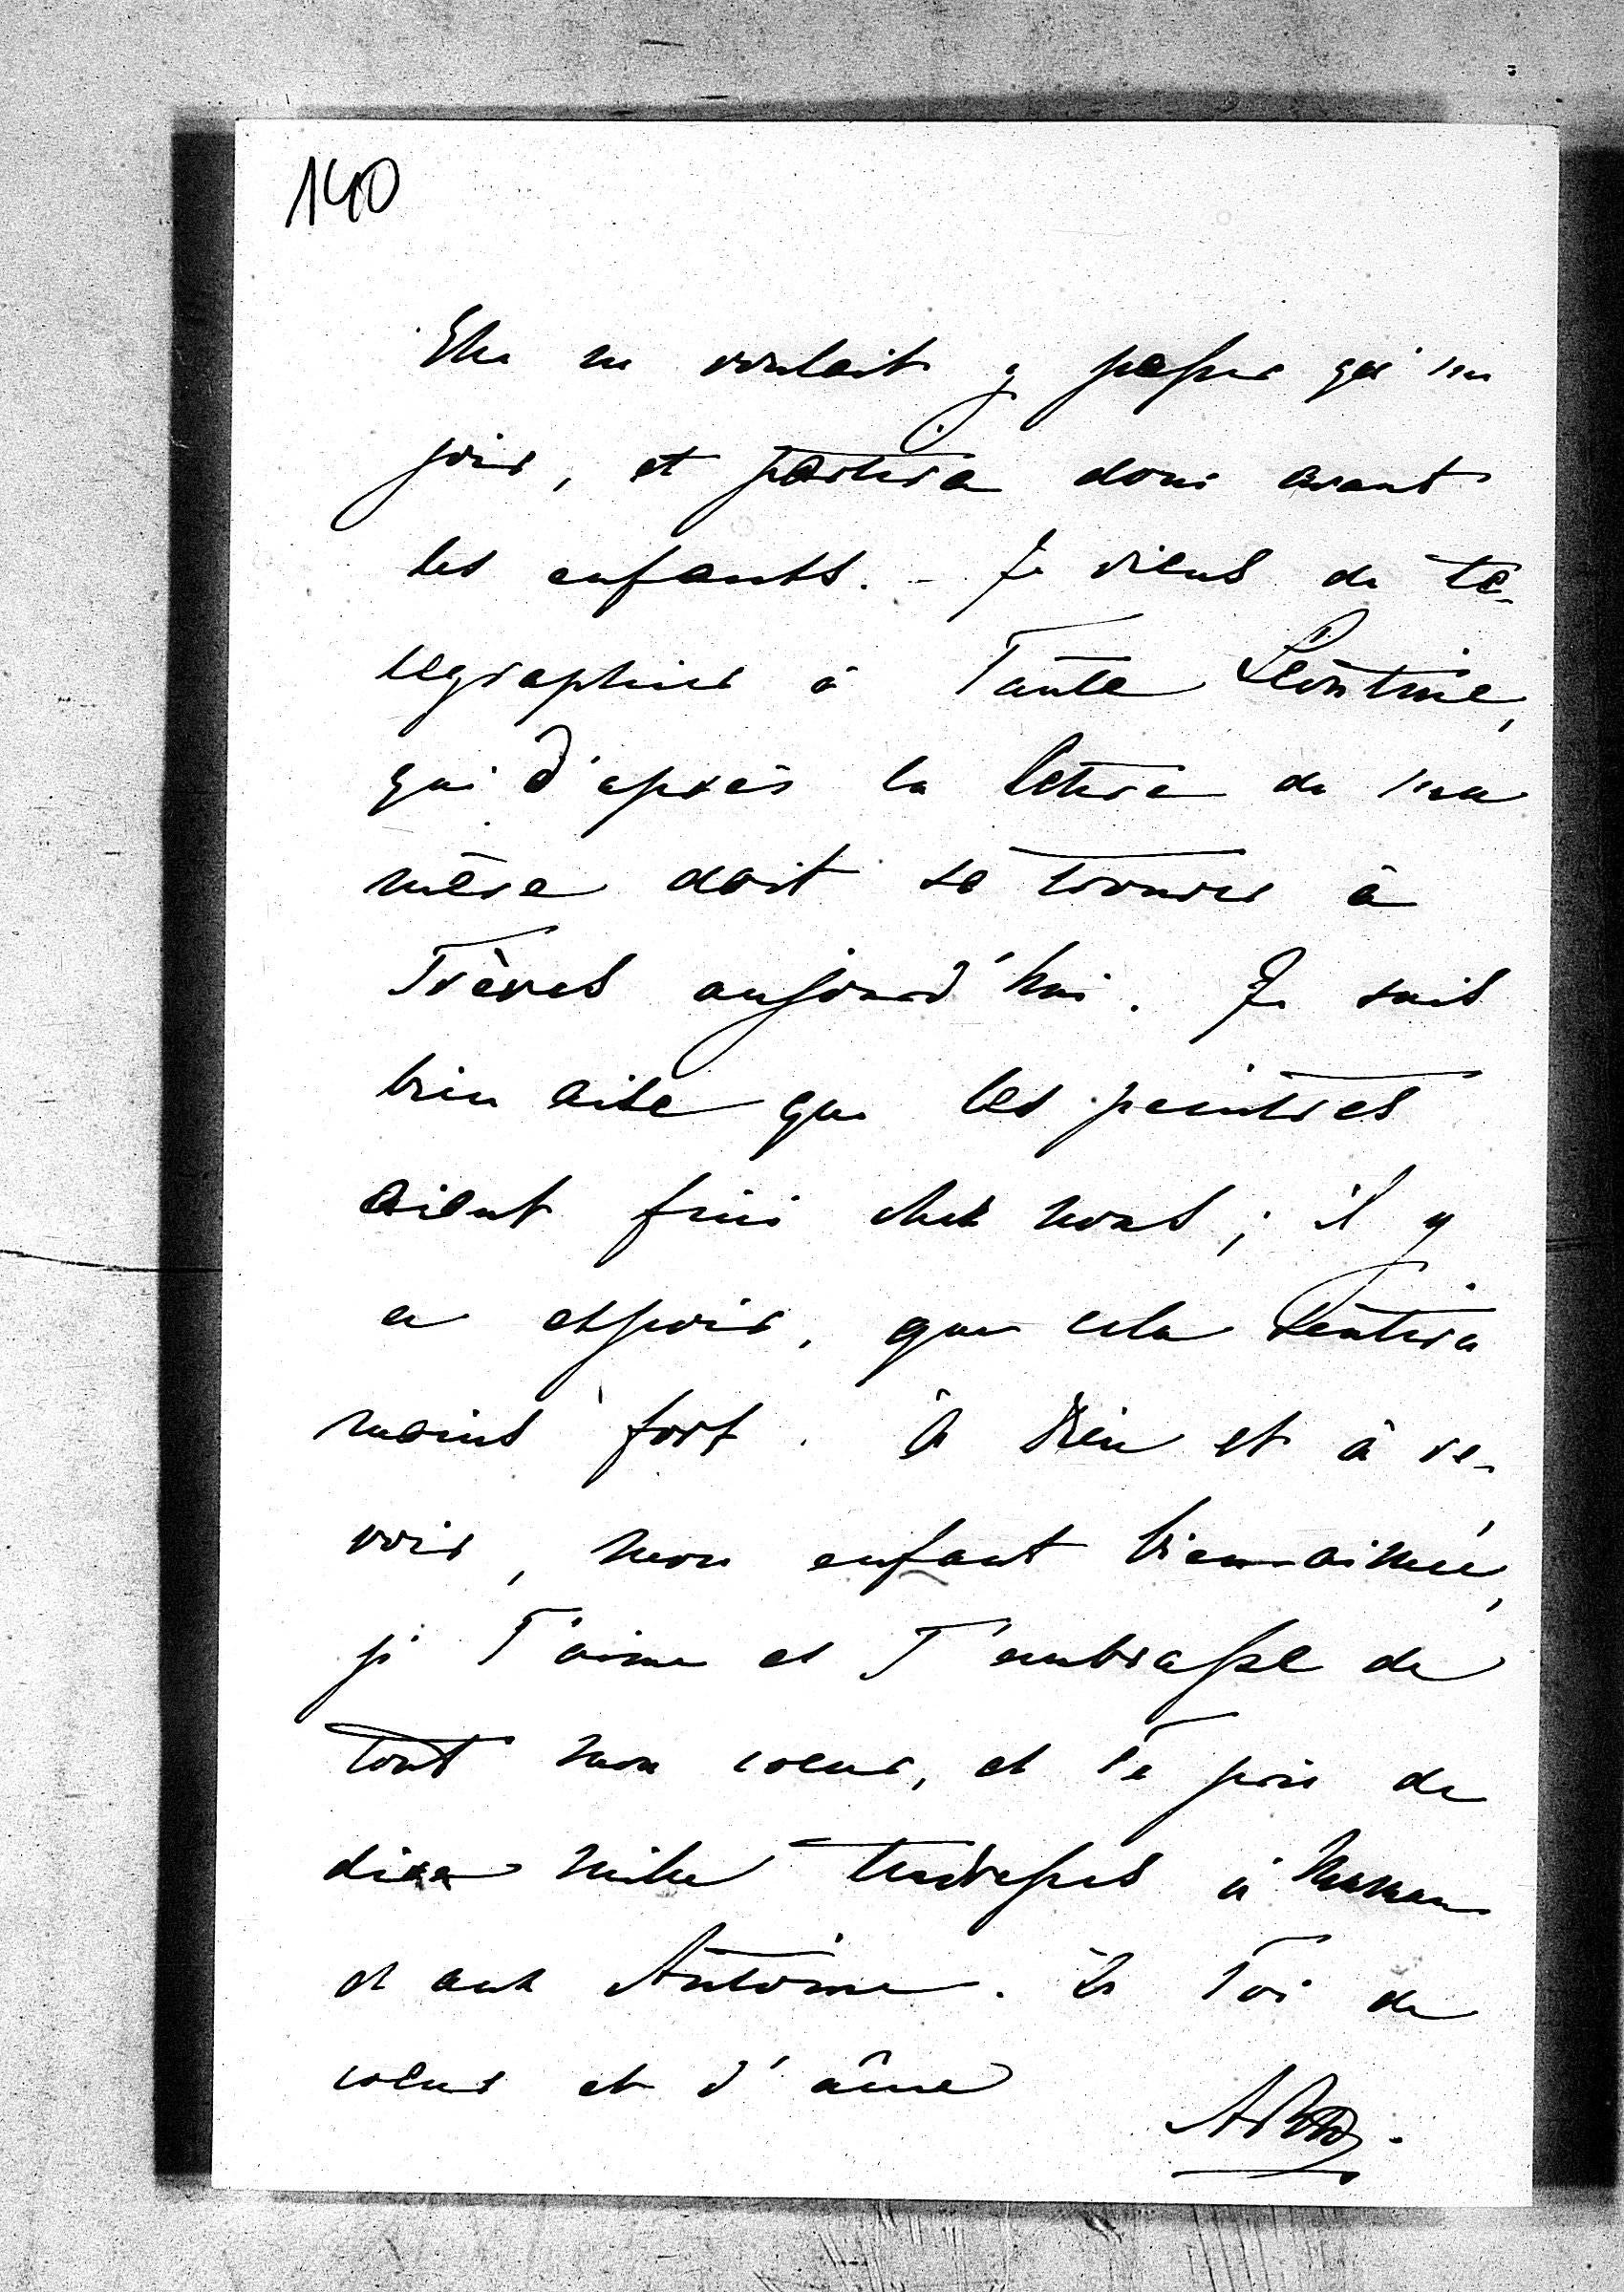 140
Elle ne voulait y passer qu'un
jour, et partira donc avant
les enfants. – Je viens de té-
legraphier à Tante Léontine,
qui d'après la lettre de ma
mère doit se trouver à
Trèves aujourd'hui. Je suis
bien aise que les peintres
aient fini chez nous; il y
a espoir, que cela sentira
moins fort. à Dieu et à re-
voir, mon enfant bien-aimée,
je T'aime et T'embrasse de
tout mon coeur, et Te prie de
dire mille tendresses à Maman
et aux Antoine. à Toi de
coeur et d'âme